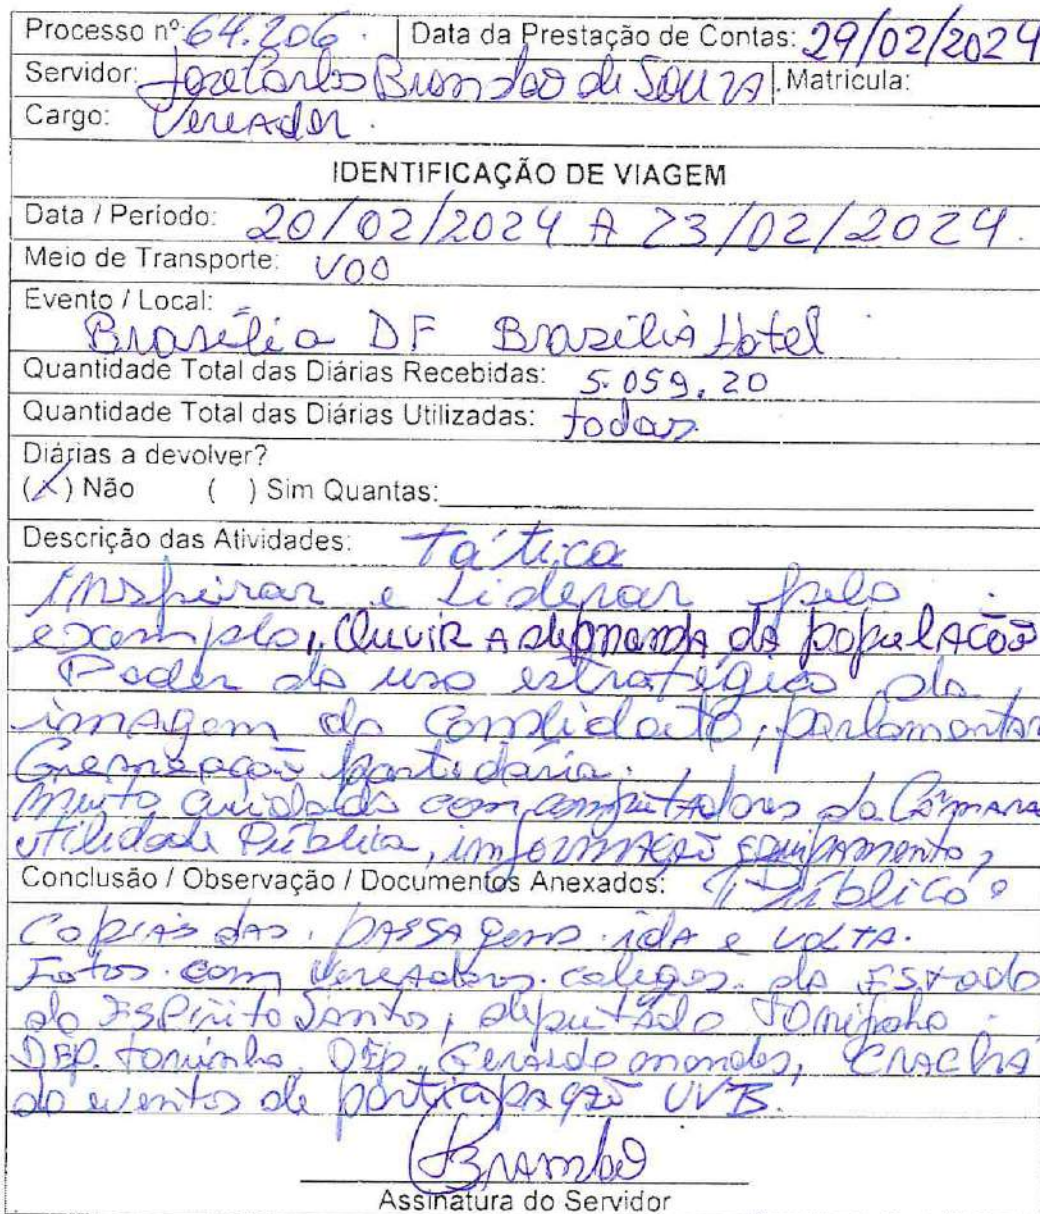 Processo nº: 64.206. Data da Prestação de Contas: 29/02/2024
Servidor: José Carlos Brandao de Souza. Matricula:
Cargo: Vereador.
IDENTIFICAÇÃO DE VIAGEM
Data / Periodo: 20/02/2024 A 23/02/2024.
Meio de Transporte: VOO
Evento / Local:
Brasélia DF Brazilia Hotel
Quantidade Total das Diárias Recebidas: 5.059,20
Quantidade Total das Diárias Utilizadas: todas
Diárias a devolver?
(X) Não ( ) Sim Quantas:
Descrição das Atividades: Tática
Inspirar e Liderar pelo
exemplo, Ouvir A demanda da populAção
Poder do uso estratégico da
imagem do Candidato, parlamentar
partidária.
Muito cuidado com computadores da Câmara
utilidade Pública, informação equipamento,
Conclusão / Observação / Documentos Anexados: Público.
Copias das. passagens. ida e volta.
Fotos. com Vereadores. colegas. do Estado
do Espirito Santos, deputado
DEP. toninho, Dep. Geraldo mendes, Crachá
do eventos de participação UVB.
Brandão
Assinatura do Servidor